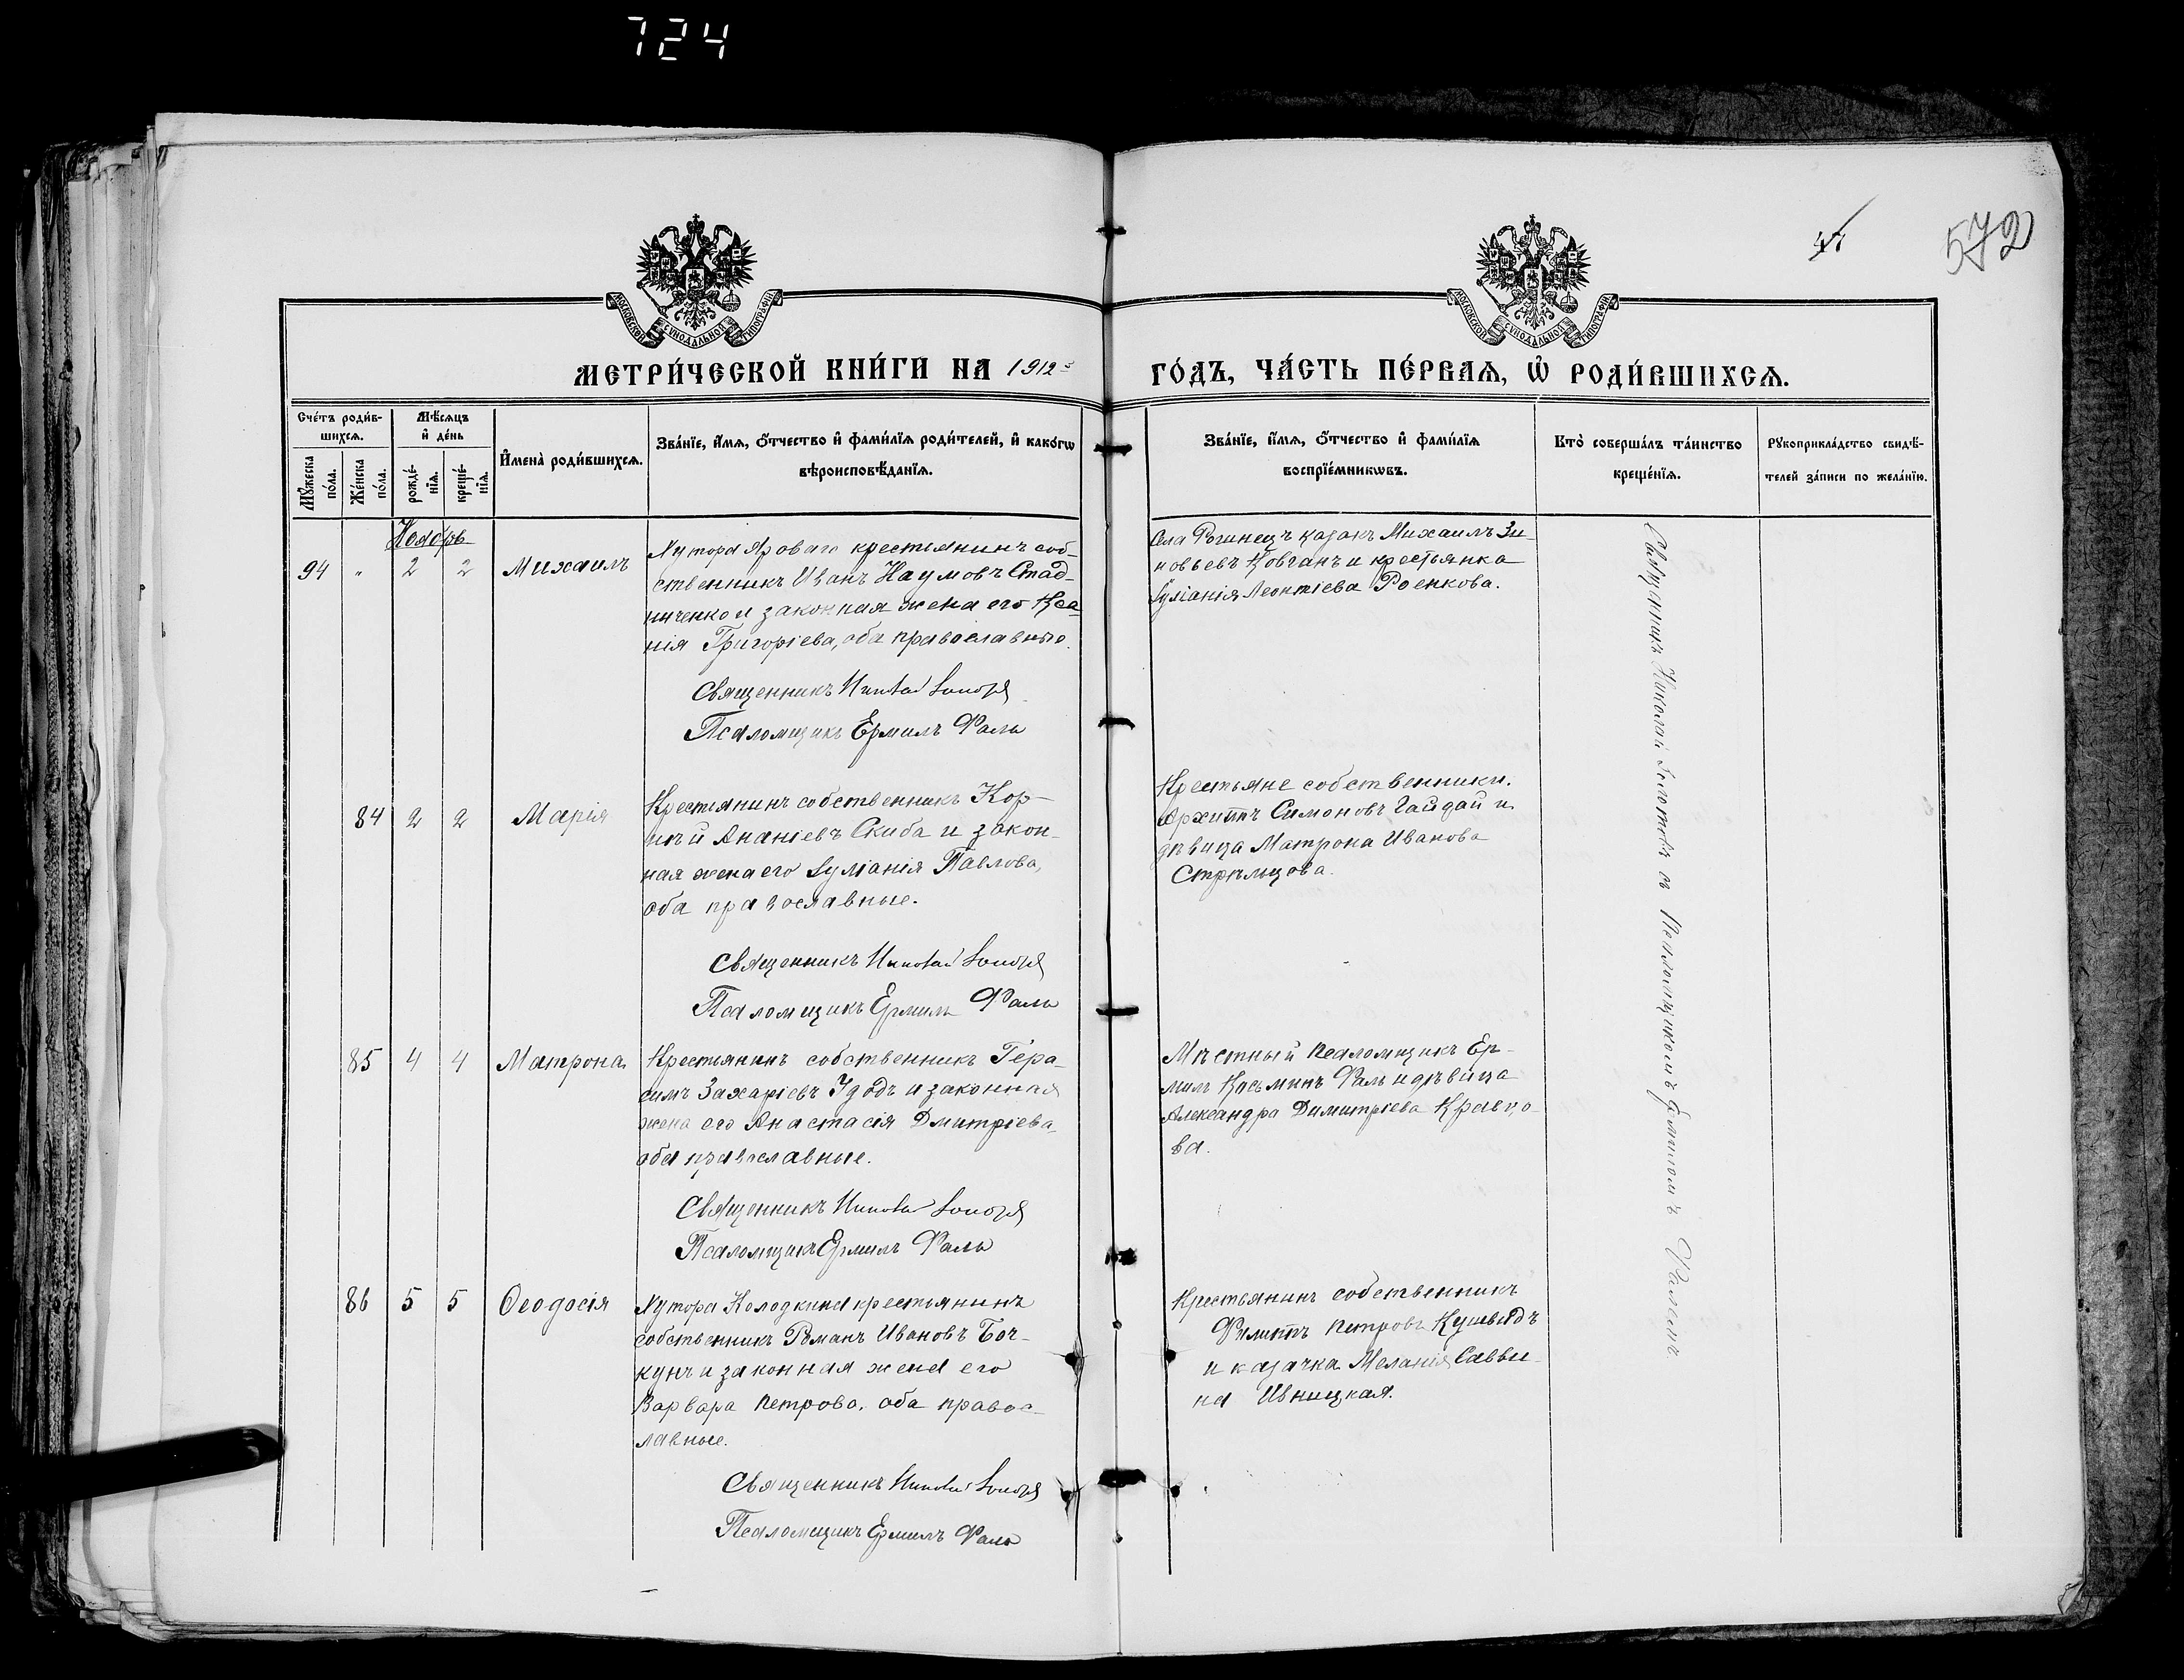 724
572
МОСКОВСКОЙ СУНОДАЛЬНОЙ ТИПОГРАФІИ
МОСКОВСКОЙ СУНОДАЛЬНОЙ ТИПОГРАФІИ
МЕТРИ́ЧЕСКОЙ КНИ́ГИ НА 1912
ГО́ДЪ, ЧА́СТЬ ПЕ́РВАѦ, Ѡ РОДИ́ВШИХСѦ.
Сче́тъ роди́в-
шихсѧ.
Мѣ́сѧцъ
и де́нь
Мꙋ́жеска
по́ла.
Же́нска
по́ла.
рожде́-
нїѧ.
креще́-
нїѧ.
Имена̀ роди́вшихсѧ.
Зва́нїе, и́мѧ, о́тчество и фами́лїѧ роди́телей, и како́гѡ
вѣроисповѣ́данїѧ.
Зва́нїе, и́мѧ, о́тчество и фами́лїѧ
воспрїе́мникѡвъ.
Кто̀ соверша́лъ та́инство
креще́нїѧ.
Рꙋкоприкла́дство свидѣ́-
телей за́писи по жела́нїю.
Ноябрь
94 " 2 2 Михаилъ
Хутора Яроваго крестьянинъ соб-
ственникъ Иванъ Наумовъ Стад-
ниченко и законная жена его Ксе-
нія Григоріева, оба православные.
Священникъ Николай
Псаломщикъ Ермилъ Фаль
Села Рогинецъ казакъ Михаилъ Зи-
новьевъ Ковганъ и крестьянка
Іуліанія Леонтіева Роенкова.
84 2 2 Марія
Крестьянинъ собственникъ Кор-
нѣй Ананіевъ Скиба и закон-
ная жена его Іуліанія Павлова,
оба православные.
Священникъ Николай
Псаломщикъ Ермилъ Фаль
Крестьяне собственники.
Архиппъ Симоновъ Гайдай и
дѣвица Матрона Иванова
Стрѣльцова.
85 4 4 Матрона
Крестьянинъ собственникъ Гера-
симъ Захаріевъ Удодъ и законная
жена его Анастасія Дмитріева,
оба православные.
Священникъ Николай
Псаломщикъ Ермилъ Фаль
Мѣстный псаломщикъ Ер-
милъ Косьминъ Фаль и дѣвица
Александра Димитріева Кравцо-
ва.
86 5 5 Ѳеодосія
Хутора Колодкина крестьянинъ
собственникъ Романъ Ивановъ Боч-
кунъ и законная жена его
Варвара Петрова, оба правос-
лавные.
Священникъ Николай
Псаломщикъ Ермилъ Фаль
Крестьянинъ собственникъ
Филиппъ Петровъ
и казачка Меланія Савви-
на Ивницкая.
Священникъ Николай съ Псаломщикомъ Ермиломъ Фалемъ